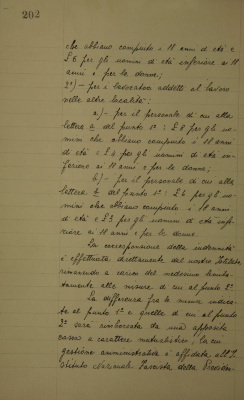 202
che abbiano compiuto i 18 anni di età e
£ 6 per gli uomini di età inferiore ai 18
anni e per le donne;
2°) - per i lavoratori addetti al lavoro
nelle altre località:
a) - per il personale di cui alla
lettera a del punto 1°: £ 8 per gli uo-
mini che abbiano compiuto i 18 anni
di età e £ 4 per gli uomini di età in-
feriore ai 18 anni e per le donne;
b) - per il personale di cui alla
lettera b del punto 1°: £ 6 per gli uo-
mini che abbiano compiuto i 18 anni
di età e £ 3 per gli uomini di età infe-
riore ai 18 anni e per le donne.
La corresponsione delle indennità
è effettuata direttamente dal nostro Istituto,
rimanendo a carico del medesimo limita-
tamente alle misure di cui al punto 2°.
La differenza fra le misure indica-
te al punto 1° e quelle di cui al punto
2° sarà rimborsata da una apposita
cassa a carattere mutualistico, la cui
gestione amministrativa è affidata all'I-
stituto Nazionale Fascista della Previden-